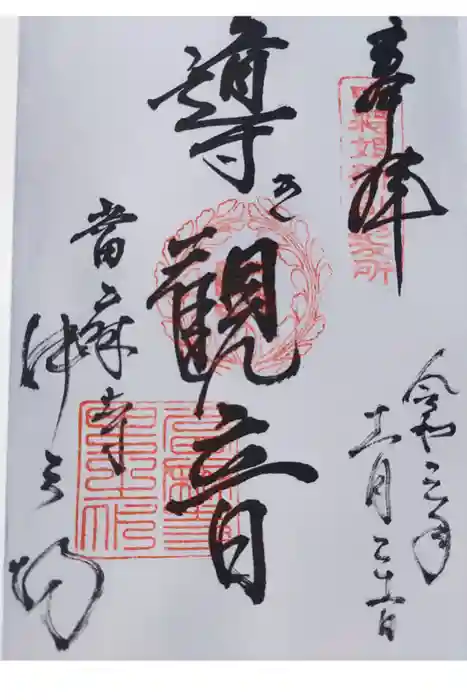 奉拝
令和三年
十一月二十一日
導き観音
當麻寺
中之坊